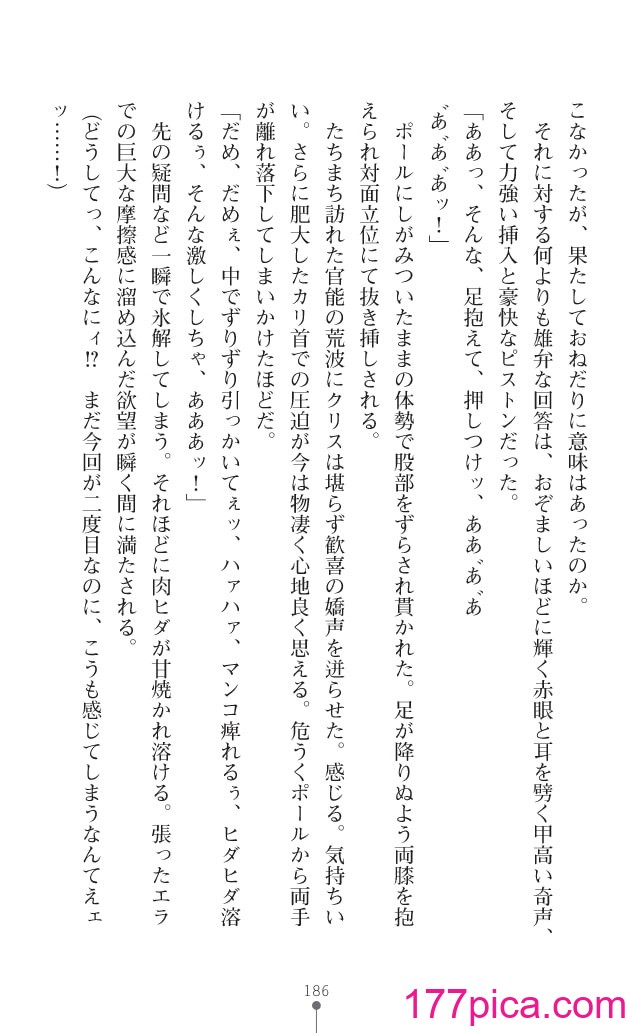 こなかったが、果たしておねだりに意味はあったのか。
それに対する何よりも雄弁な回答は、おぞましいほどに輝く赤眼と耳を劈く甲高い奇声、
そして力強い挿入と豪快なピストンだった。
「ああっ、そんな、足抱えて、押しつけッ、ああ゛あ゛あ゛
あ゛あ゛あ゛ッ！」
ポールにしがみついたままの体勢で股部をずらされ貫かれた。足が降りぬよう両膝を抱
えられ対面立位にて抜き挿しされる。
たちまち訪れた官能の荒波にクリスは堪らず歓喜の嬌声を迸らせた。感じる。気持ちい
い。さらに肥大したカリ首での圧迫が今は物凄く心地良く思える。危うくポールから両手
が離れ落下してしまいかけたほどだ。
「だめ、だめぇ、中でずりずり引っかいてぇッ、ハァハァ、マンコ痺れるぅ、ヒダヒダ溶
けるぅ、そんな激しくしちゃ、あああッ！」
先の疑問など一瞬で氷解してしまう。それほどに肉ヒダが甘焼かれ溶ける。張ったエラ
での巨大な摩擦感に溜め込んだ欲望が瞬く間に満たされる。
（どうしてっ、こんなにィ!?　まだ今回が二度目なのに、こうも感じてしまうなんてえェ
ッ……！）
186
177pica.com